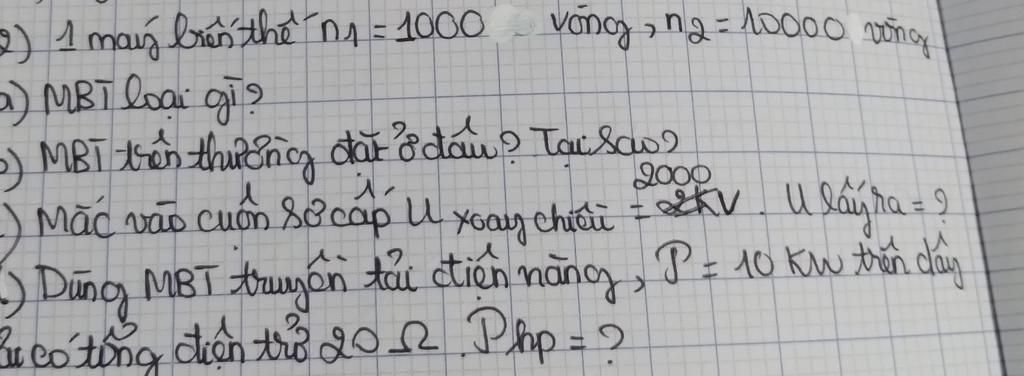 2) 1 máy biến thế n1 = 1000 vòng, n2 = 10000 vòng
a) MBT loại gì?
b) MBT trên thường đặt ở đâu? Tại sao?
) Mắc vào cuộn sơ cấp U xoay chiều = 2000 V. U lấy ra = ?
) Dùng MBT truyền tải điện năng, P = 10 KW trên dây
có tổng điện trở 20 Ω. Php = ?